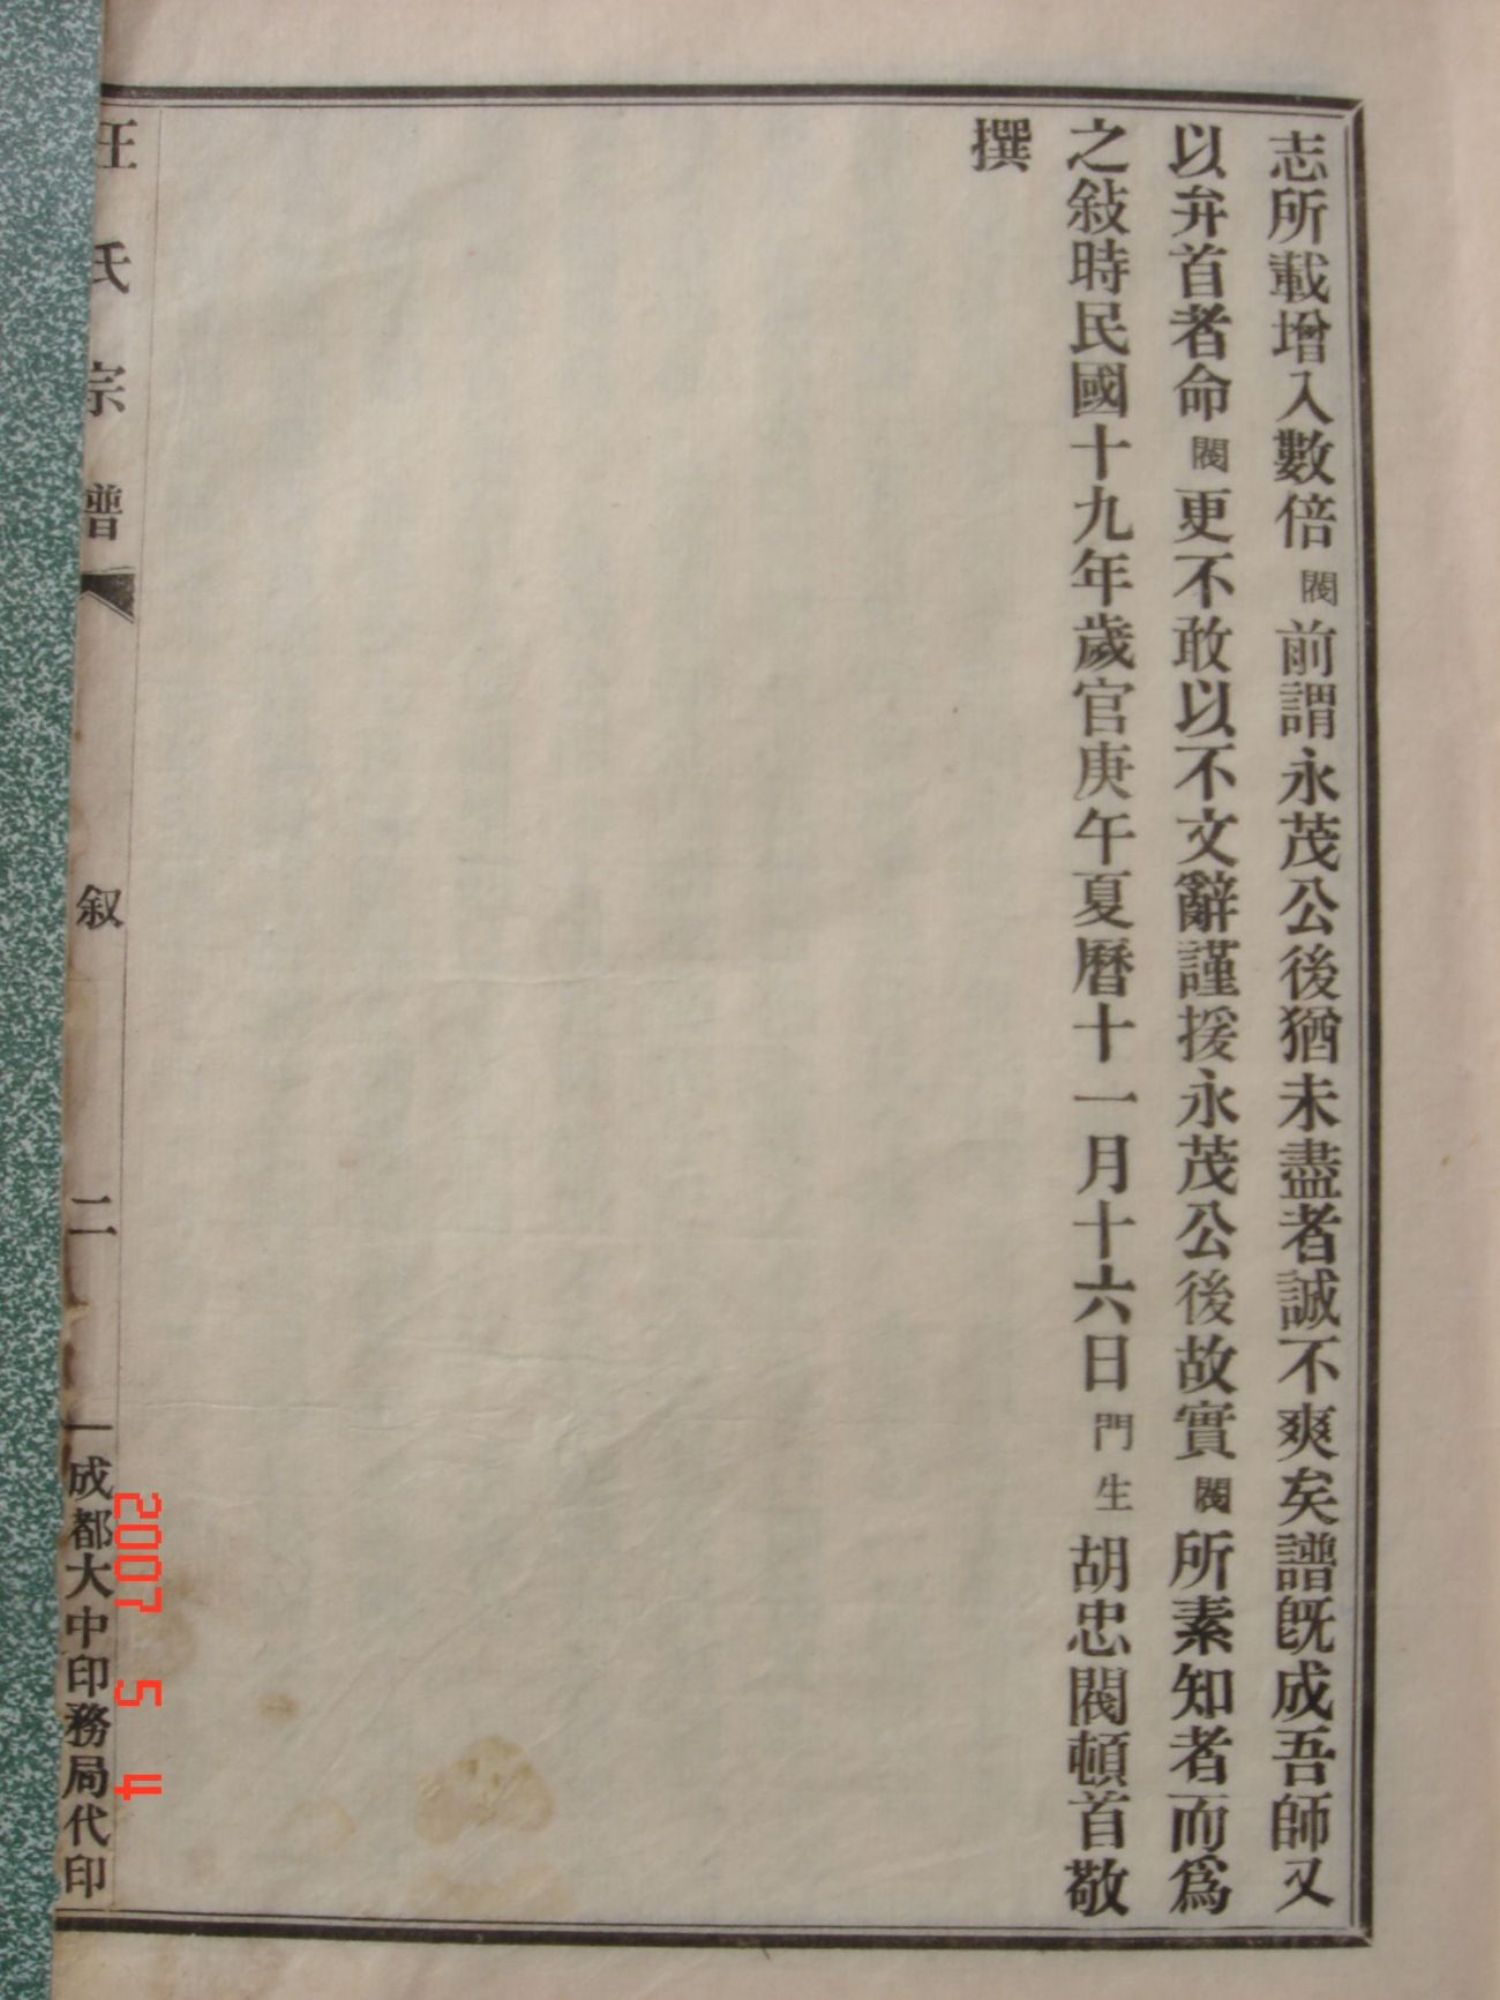 志所載增入數倍閥前謂永茂公後猶未盡者誠不爽矣譜旣成吾師又
以弁首者命閥更不敢以不文辭謹援永茂公後故實閥所素知者而爲
之敍時民國十九年歲官庚午夏曆十一月十六日門生胡忠閥頓首敬
撰
汪氏宗譜 叙 二 成都大中印務局代印
2007 5 4